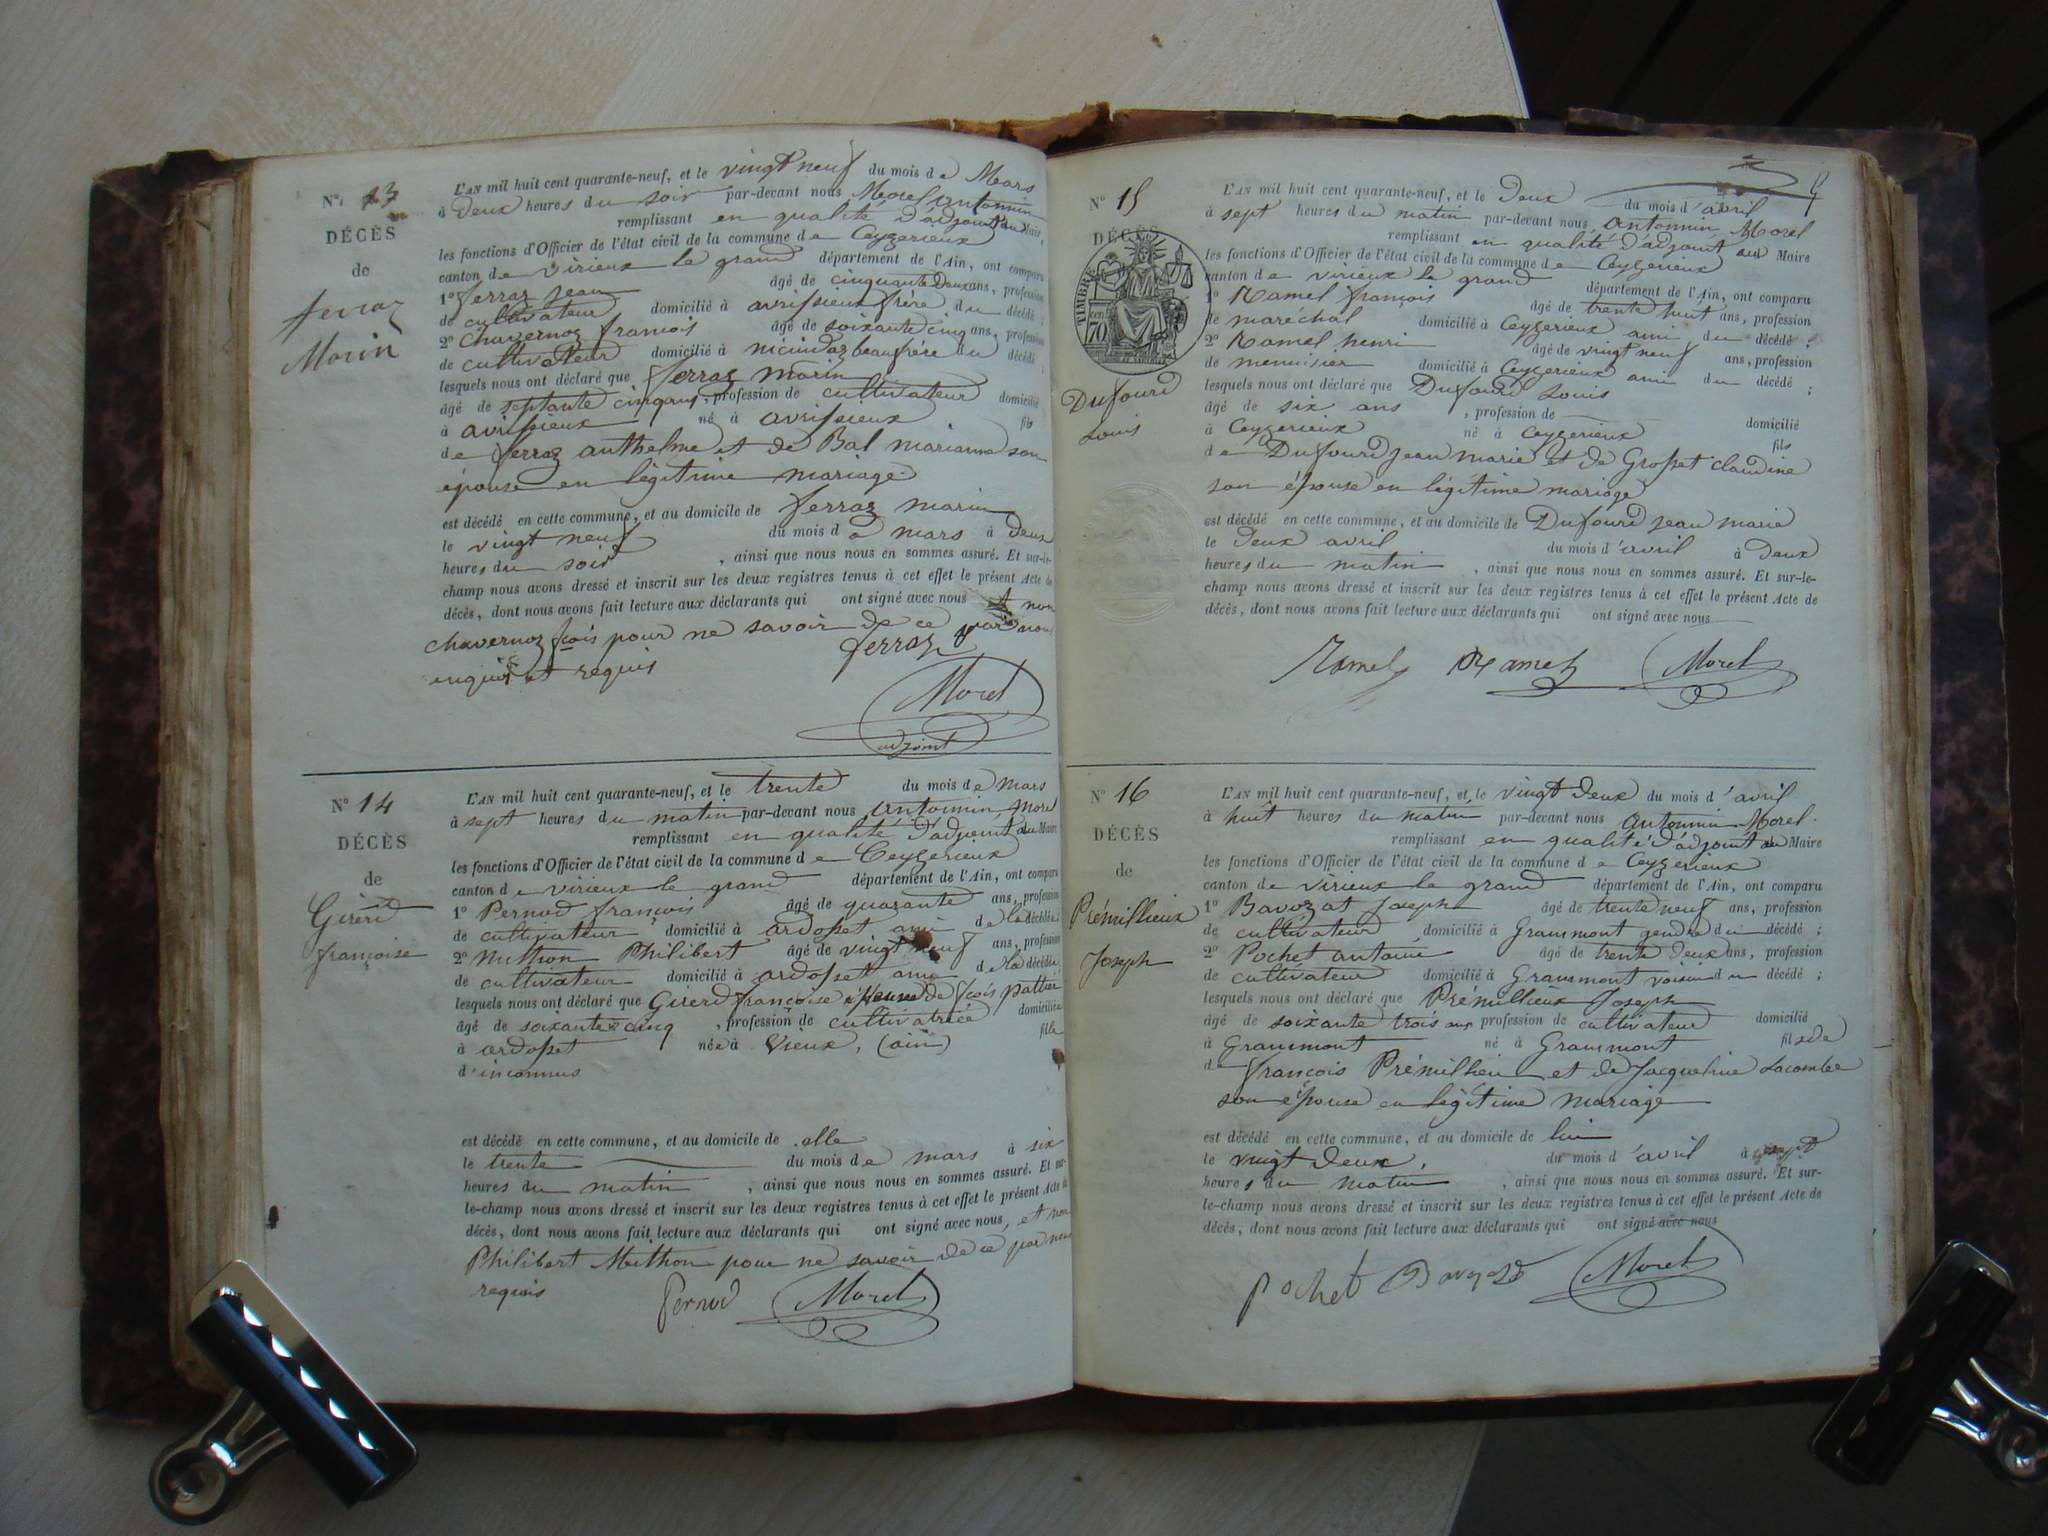 N° 13
DÉCÈS
de
ferraz
Marin
L'AN mil huit cent quarante-neuf, et le vingt neuf du mois de Mars
à deux heures du soir par-devant nous Morel antonnin
remplissant en qualité d'adjoint au Maire,
les fonctions d'Officier de l'état civil de la commune de Ceyzerieux
canton de virieux le grand département de l'Ain, ont comparu
1° ferraz jean âgé de cinquante deux ans, profession
de cultivateur domicilié à avrissieux frère du décédé ;
2° chavernoz françois âgé de soixante cinq ans, profession
de cultivateur domicilié à beaufrère du décédé ;
lesquels nous ont déclaré que ferraz marin
âgé de septante cinq ans, profession de cultivateur domicilié
à avrissieux né à avrissieux fils
de ferraz anthelme et de Bal marianne son
épouse en légitime mariage
est décédé en cette commune, et au domicile de ferraz marin
le vingt neuf du mois de mars à deux
heures du soir , ainsi que nous nous en sommes assuré. Et sur-le-
champ nous avons dressé et inscrit sur les deux registres tenus à cet effet le présent Acte de
décès, dont nous avons fait lecture aux déclarants qui ont signé avec nous et non
chavernoz fçois pour ne savoir de ce par nous
enquis et requis ferraz
Morel
adjoint
N° 14
DÉCÈS
de
Girerd
françoise
L'AN mil huit cent quarante-neuf, et le trente du mois de mars
à sept heures du matin par-devant nous antonnin Morel
remplissant en qualité d'adjoint au Maire
les fonctions d'Officier de l'état civil de la commune de Ceyzerieux
canton de virieux le grand département de l'Ain, ont comparu
1° Pernod françois âgé de quarante ans, profession
de cultivateur domicilié à ardosset ami de la décédée ;
2° Mithon Philibert âgé de vingt neuf ans, profession
de cultivateur domicilié à ardosset ami de la décédée
lesquels nous ont déclaré que Girerd françoise veuve de fçois pattier
âgé de soixante cinq , profession de cultivatrice domiciliée
à ardosset née à Vieux, (ain) fille
d'inconnus
est décédé en cette commune, et au domicile de elle
le trente du mois de mars à six
heures du matin , ainsi que nous nous en sommes assuré. Et sur-
le-champ nous avons dressé et inscrit sur les deux registres tenus à cet effet le présent Acte de
décès, dont nous avons fait lecture aux déclarants qui ont signé avec nous, et non
Philibert Mithon pour ne savoir de ce par nous
requis Pernod Morel
N° 15
DÉCÈS
TIMBRE
70
Dufourd
Louis
L'AN mil huit cent quarante-neuf, et le Deux du mois d'avril
à sept heures du matin par-devant nous antonnin Morel
remplissant en qualité d'adjoint au Maire
les fonctions d'Officier de l'état civil de la commune de Ceyzerieux
canton de virieux le grand département de l'Ain, ont comparu
1° Ramel françois âgé de trente huit ans, profession
de maréchal domicilié à Ceyzerieux ami du décédé ;
2° Ramel henri âgé de vingt neuf ans, profession
de menuisier domicilié à Ceyzerieux ami du décédé ;
lesquels nous ont déclaré que Dufourd Louis
âgé de six ans , profession de
à Ceyzerieux né à Ceyzerieux domicilié
fils
de Dufourd jean marie et de Grosset claudine
son épouse en légitime mariage
est décédé en cette commune, et au domicile de Dufourd jean marie
le Deux avril du mois d'avril à Deux
heures du matin , ainsi que nous nous en sommes assuré. Et sur-le-
champ nous avons dressé et inscrit sur les deux registres tenus à cet effet le présent Acte de
décès, dont nous avons fait lecture aux déclarants qui ont signé avec nous
Ramel Ramel Morel
N° 16
DÉCÈS
de
Prémillieux
Joseph
L'AN mil huit cent quarante-neuf, et le vingt deux du mois d'avril
à huit heures du matin par-devant nous antonnin Morel
remplissant en qualité d'adjoint au Maire
les fonctions d'Officier de l'état civil de la commune de Ceyzerieux
canton de virieux le grand département de l'Ain, ont comparu
1° Bavozat Joseph âgé de trente neuf ans, profession
de cultivateur domicilié à Grammont gendre du décédé ;
2° Pochet antoine âgé de trente deux ans, profession
de cultivateur domicilié à Grammont voisin du décédé ;
lesquels nous ont déclaré que Prémillieux Joseph
âgé de soixante trois ans profession de cultivateur domicilié
à Grammont né à Grammont fils de
de françois Prémillieu et de Jacqueline Lacombe
son épouse en légitime mariage
est décédé en cette commune, et au domicile de lui
le vingt deux, du mois d'avril à sept
heures du matin , ainsi que nous nous en sommes assuré. Et sur-
le-champ nous avons dressé et inscrit sur les deux registres tenus à cet effet le présent Acte de
décès, dont nous avons fait lecture aux déclarants qui ont signé avec nous
Pochet Bavozat Morel